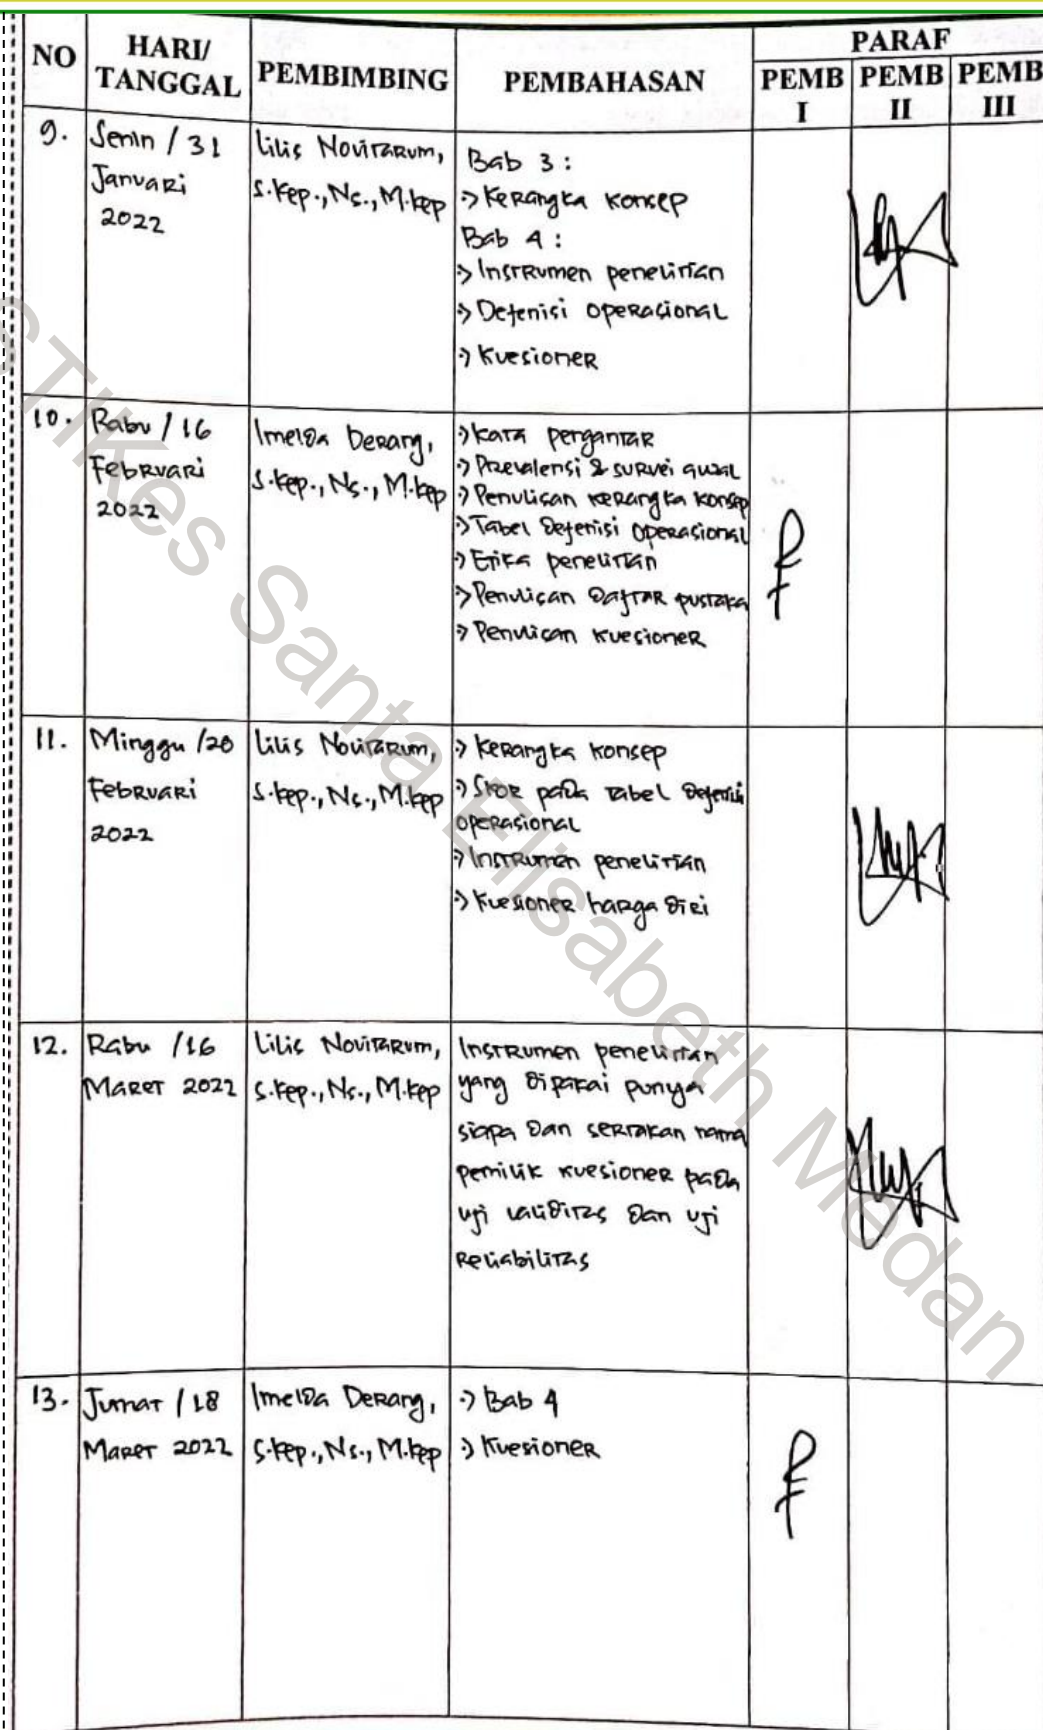 NO
HARI/
TANGGAL
PEMBIMBING
PEMBAHASAN
PARAF
PEMB
I
PEMB
II
PEMB
III
9.
Senin / 31
Januari
2022
Lilis Novitarum,
S.Kep., Ns., M.Kep
Bab 3 :
-> Kerangka konsep
Bab 4 :
-> Instrumen penelitian
-> Defenisi operasional
-> Kuesioner
10.
Rabu / 16
Februari
2022
Imelda Derang,
S.Kep., Ns., M.Kep
-> Kata pengantar
-> Prevalensi & survei awal
-> Penulisan kerangka konsep
-> Tabel defenisi operasional
-> Etika penelitian
-> Penulisan daftar pustaka
-> Penulisan kuesioner
11.
Minggu /20
Februari
2022
Lilis Novitarum,
S.Kep., Ns., M.Kep
-> Kerangka konsep
-> Skor pada tabel defenisi
operasional
-> Instrumen penelitian
-> Kuesioner harga diri
12.
Rabu /16
Maret 2022
Lilis Novitarum,
S.Kep., Ns., M.Kep
Instrumen penelitian
yang dipakai punya
siapa dan sertakan nama
pemilik kuesioner pada
uji validitas dan uji
Reliabilitas
13.
Jumat / 18
Maret 2022
Imelda Derang,
S.Kep., Ns., M.Kep
-> Bab 4
-> Kuesioner
STIKes Santa Elisabeth Medan